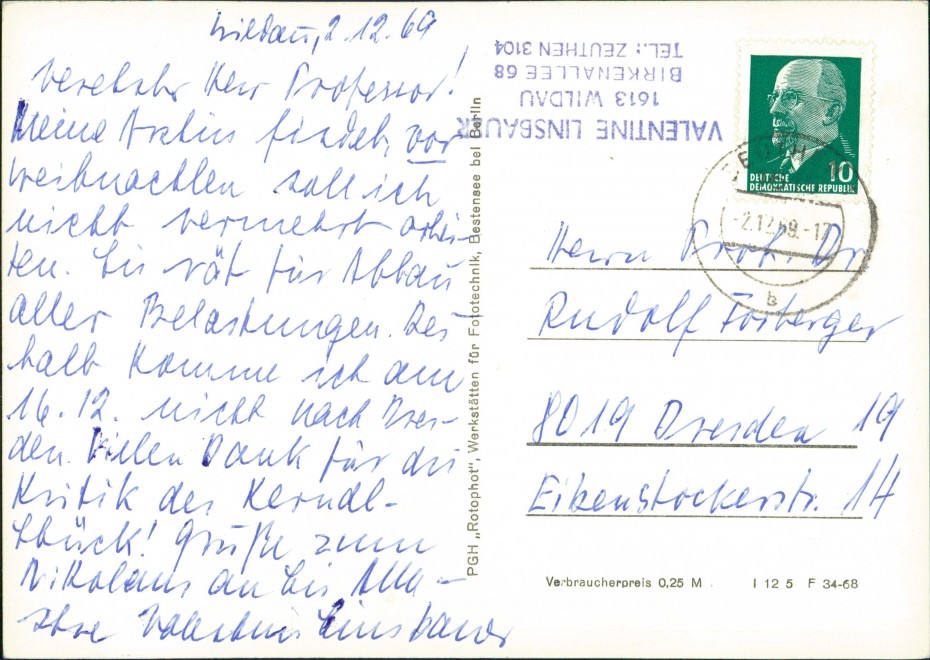 Wildau, 2.12.69
Verehrter Herr Professor!
Meine Ärztin findet, vor
Weihnachten soll ich
nicht vermehrt arbei-
ten. Sie rät für Abbau
aller Belastungen. Des
halb komme ich am
16.12. nicht nach Dres-
den. Vielen Dank für die
Kritik des
! Grüße zum
Nikolaus an Sie Alle
Ihre Valentine Linsbauer
PGH „Rotophot", Werkstätten für Fototechnik, Bestensee bei Berlin
VALENTINE LINSBAUER
1613 WILDAU
BIRKENALLEE 68
TEL.: ZEUTHEN 3104
10
DEUTSCHE
DEMOKRATISCHE REPUBLIK
-2.12.69.-17
b
Herrn Prof. Dr
Rudolf Forberger
8019 Dresden 19
Eibenstockerstr. 14
Verbraucherpreis 0,25 M I 12 5 F 34-68